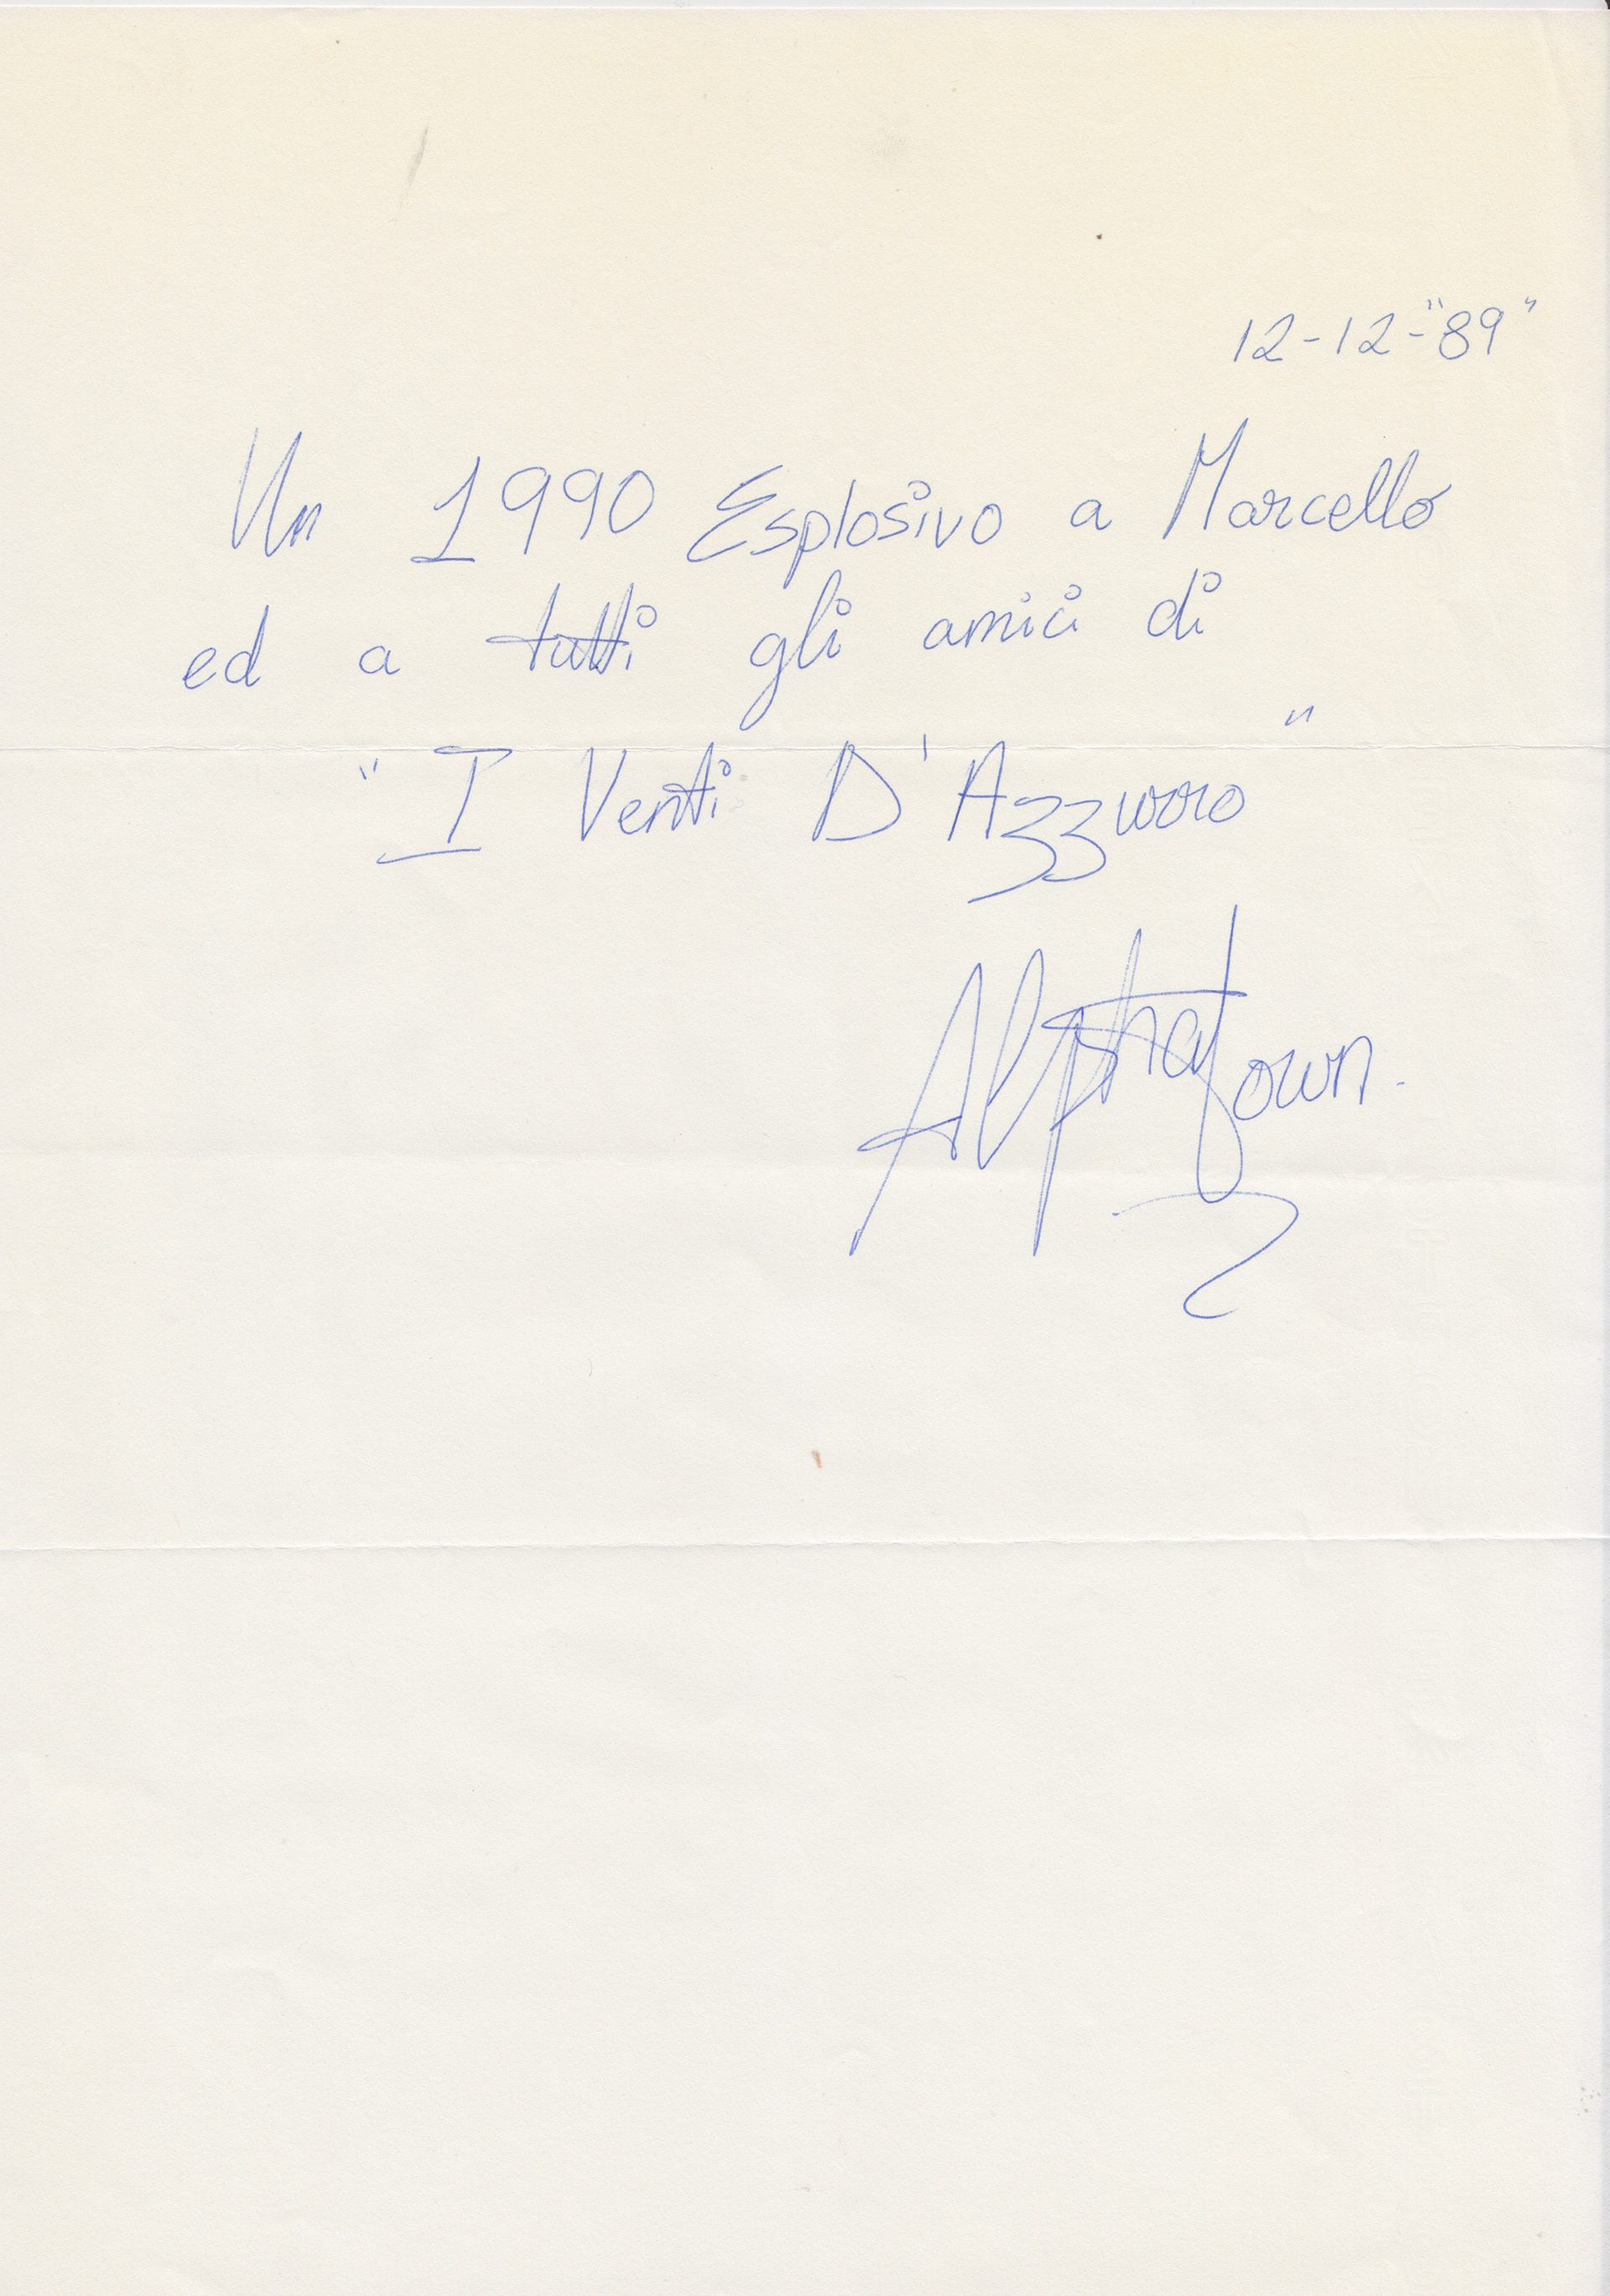 12-12-"89"
Un 1990 Esplosivo a Marcello
ed a tutti gli amici di
"I Venti D'Azzurro"
Alphatown.